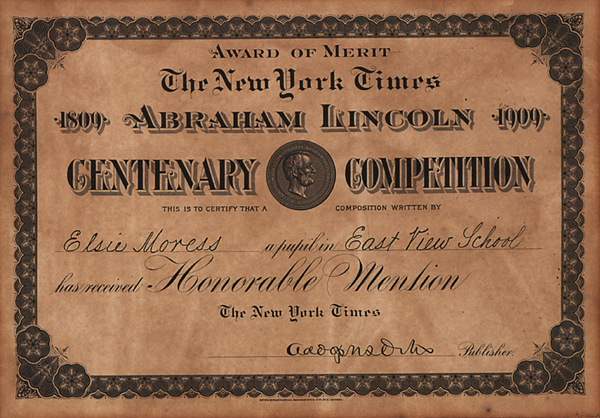 AWARD OF MERIT
The New York Times
1809 ABRAHAM LINCOLN 1909
CENTENARY COMPETITION
THIS IS TO CERTIFY THAT A COMPOSITION WRITTEN BY
Elsie Moress a pupil in East View School
has received Honorable Mention
The New York Times
Publisher.